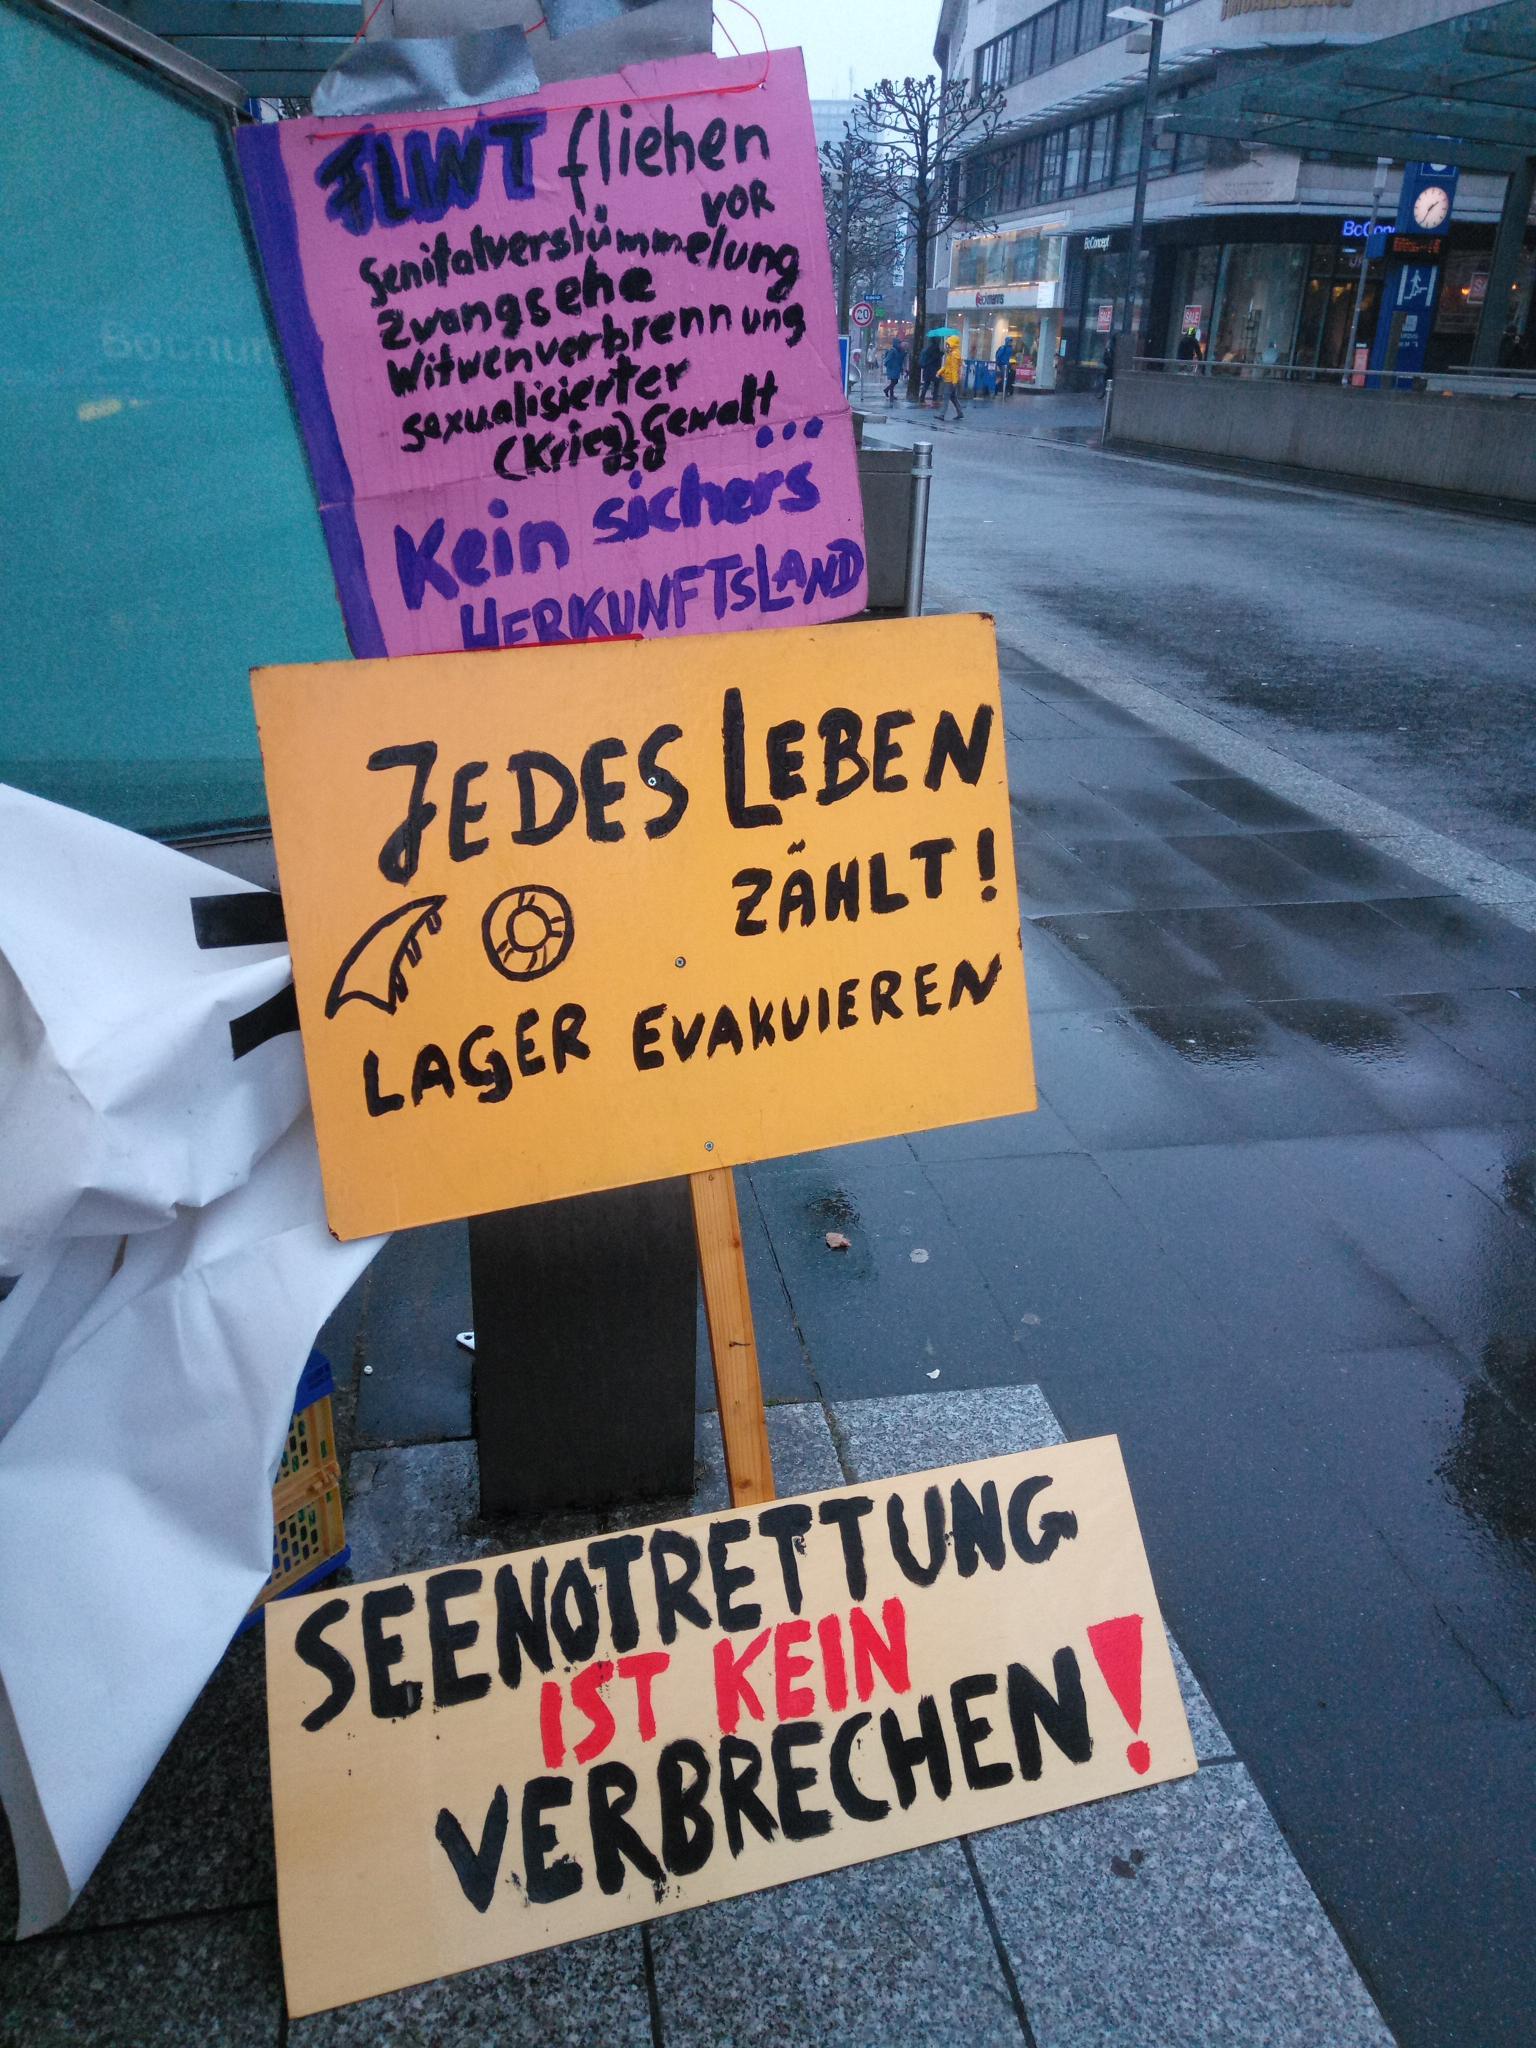 FLINT fliehen
vor
Genitalverstümmelung
Zwangsehe
Witwenverbrennung
sexualisierter
(Krieg) Gewalt
...
Kein sichers
HERKUNFTSLAND
JEDES LEBEN
ZÄHLT!
LAGER EVAKUIEREN
SEENOTRETTUNG
IST KEIN
VERBRECHEN!
BoConcept
BoCon
20
SALE
SALE